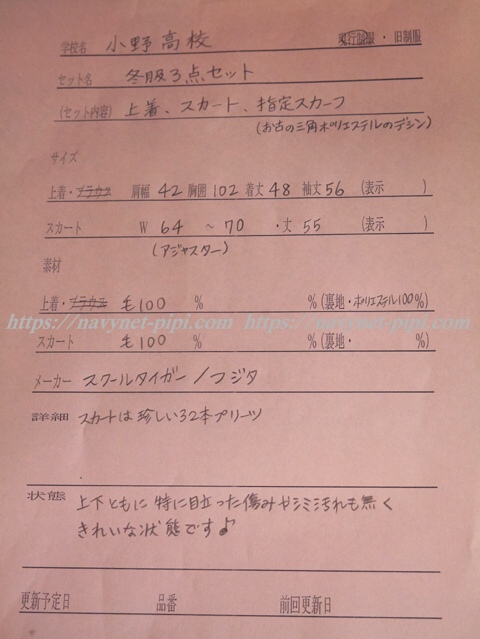 学校名 小野高校 現行制服・旧制服
セット名 冬服3点セット
(セット内容) 上着、スカート、指定スカーフ
(お古の三角ポリエステルのデシン)
サイズ
上着・ブラウス 肩幅 42 胸囲 102 着丈 48 袖丈 56 (表示 )
スカート W 64 ～ 70 ・丈 55 (表示 )
(アジャスター)
素材
上着・ブラウス 毛100 % %(裏地・ポリエステル100%)
https://navynet-pipi.com https://navynet-pipi.com
スカート 毛100 % %(裏地・ %)
メーカー スクールタイガー/フジタ
詳細 スカートは珍しい32本プリーツ
状態 上下ともに特に目立った傷みやシミ汚れも無く
きれいな状態です♪
更新予定日 品番 前回更新日